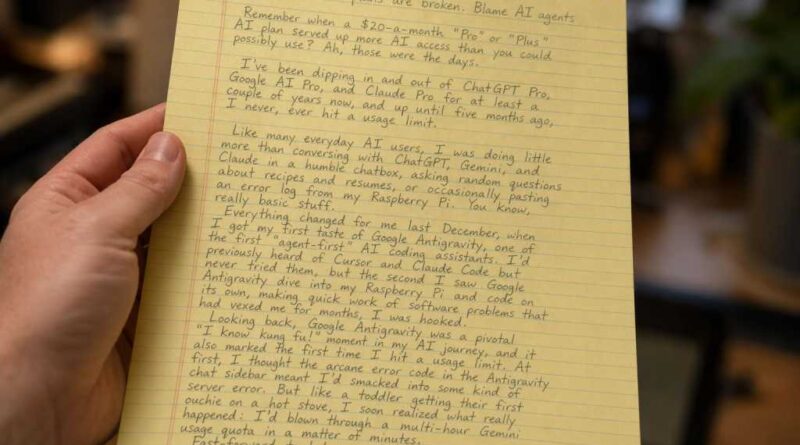 are broken. Blame AI agents
Remember when a $20-a-month "Pro" or "Plus"
AI plan served up more AI access than you could
possibly use? Ah, those were the days.
I've been dipping in and out of ChatGPT Pro,
Google AI Pro, and Claude Pro for at least a
couple of years now, and up until five months ago,
I never, ever hit a usage limit.
Like many everyday AI users, I was doing little
more than conversing with ChatGPT, Gemini, and
Claude in a humble chatbox, asking random questions
about recipes and resumes, or occasionally pasting
an error log from my Raspberry Pi. You know,
really basic stuff.
Everything changed for me last December, when
I got my first taste of Google Antigravity, one of
the first "agent-first" AI coding assistants. I'd
previously heard of Cursor and Claude Code but
never tried them, but the second I saw Google
Antigravity dive into my Raspberry Pi and code on
its own, making quick work of software problems that
had vexed me for months, I was hooked.
Looking back, Google Antigravity was a pivotal
"I know kung fu!" moment in my AI journey, and it
also marked the first time I hit a usage limit. At
first, I thought the arcane error code in the Antigravity
chat sidebar meant I'd smacked into some kind of
server error. But like a toddler getting their first
ouchie on a hot stove, I soon realized what really
happened: I'd blown through a multi-hour Gemini
usage quota in a matter of minutes.